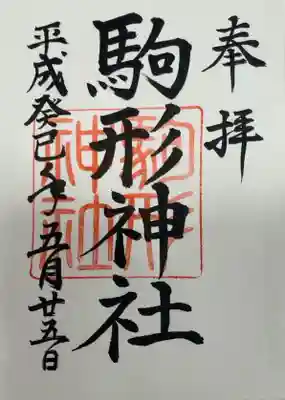 奉拝
駒形神社
駒形神社
平成癸巳年五月廿五日